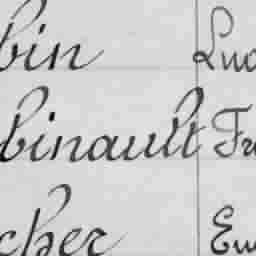 bin Luc
binault Fr
cher Em